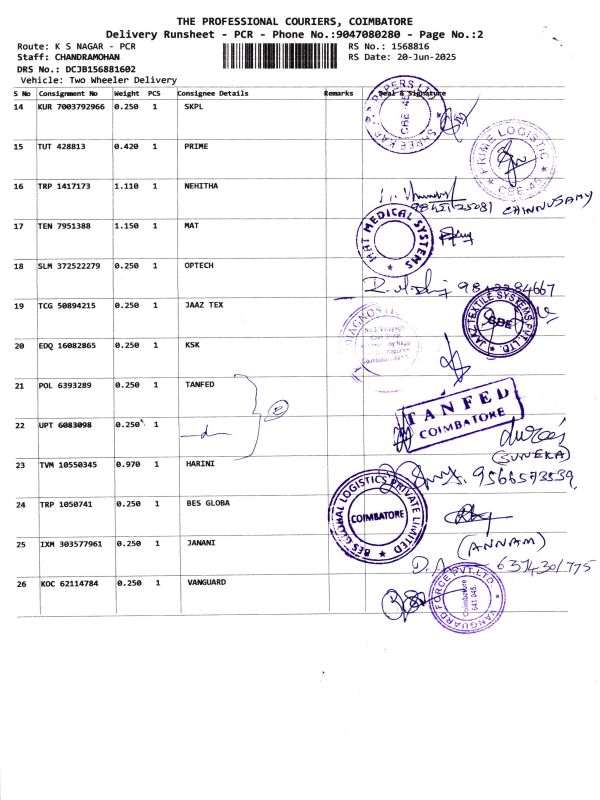 THE PROFESSIONAL COURIERS, COIMBATORE
Delivery Runsheet - PCR - Phone No.:9047080280 - Page No.:2
Route: K S NAGAR - PCR
RS No.: 1568816
Staff: CHANDRAMOHAN
RS Date: 20-Jun-2025
DRS No.: DCJB156881602
Vehicle: Two Wheeler Delivery
S No Consignment No Weight PCS Consignee Details Remarks Seal & Signature
14 KUR 7003792966 0.250 1 SKPL
15 TUT 428813 0.420 1 PRIME
PRIME LOGISTIC CBE-45
16 TRP 1417173 1.110 1 NEHITHA
CHINNUSAMY
17 TEN 7951388 1.150 1 MAT
MAT MEDICAL SYSTEMS
18 SLM 372522279 0.250 1 OPTECH
9842284667
19 TCG 50894215 0.250 1 JAAZ TEX
JAAZ TEXTILE SYSTEMS PVT. LTD. CBE
20 EDQ 16082865 0.250 1 KSK
21 POL 6393289 0.250 1 TANFED
TANFED
COIMBATORE
22 UPT 6083098 0.250 1
(SUNEKA)
23 TVM 10550345 0.970 1 HARINI
9566573539
24 TRP 1050741 0.250 1 BES GLOBA
BES GLOBAL LOGISTICS PRIVATE LIMITED
COIMBATORE
(ANNAM)
25 IXM 303577961 0.250 1 JANANI
6374301775
26 KOC 62114784 0.250 1 VANGUARD
VANGUARD FORCE PVT. LTD.
Coimbatore
641 045.